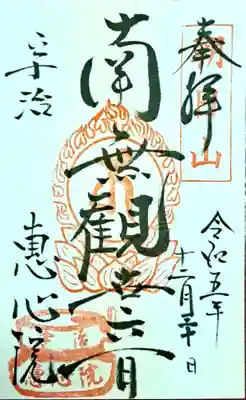 奉拝
朝日山
令和五年
十二月
南無觀世音
宇治
惠心院